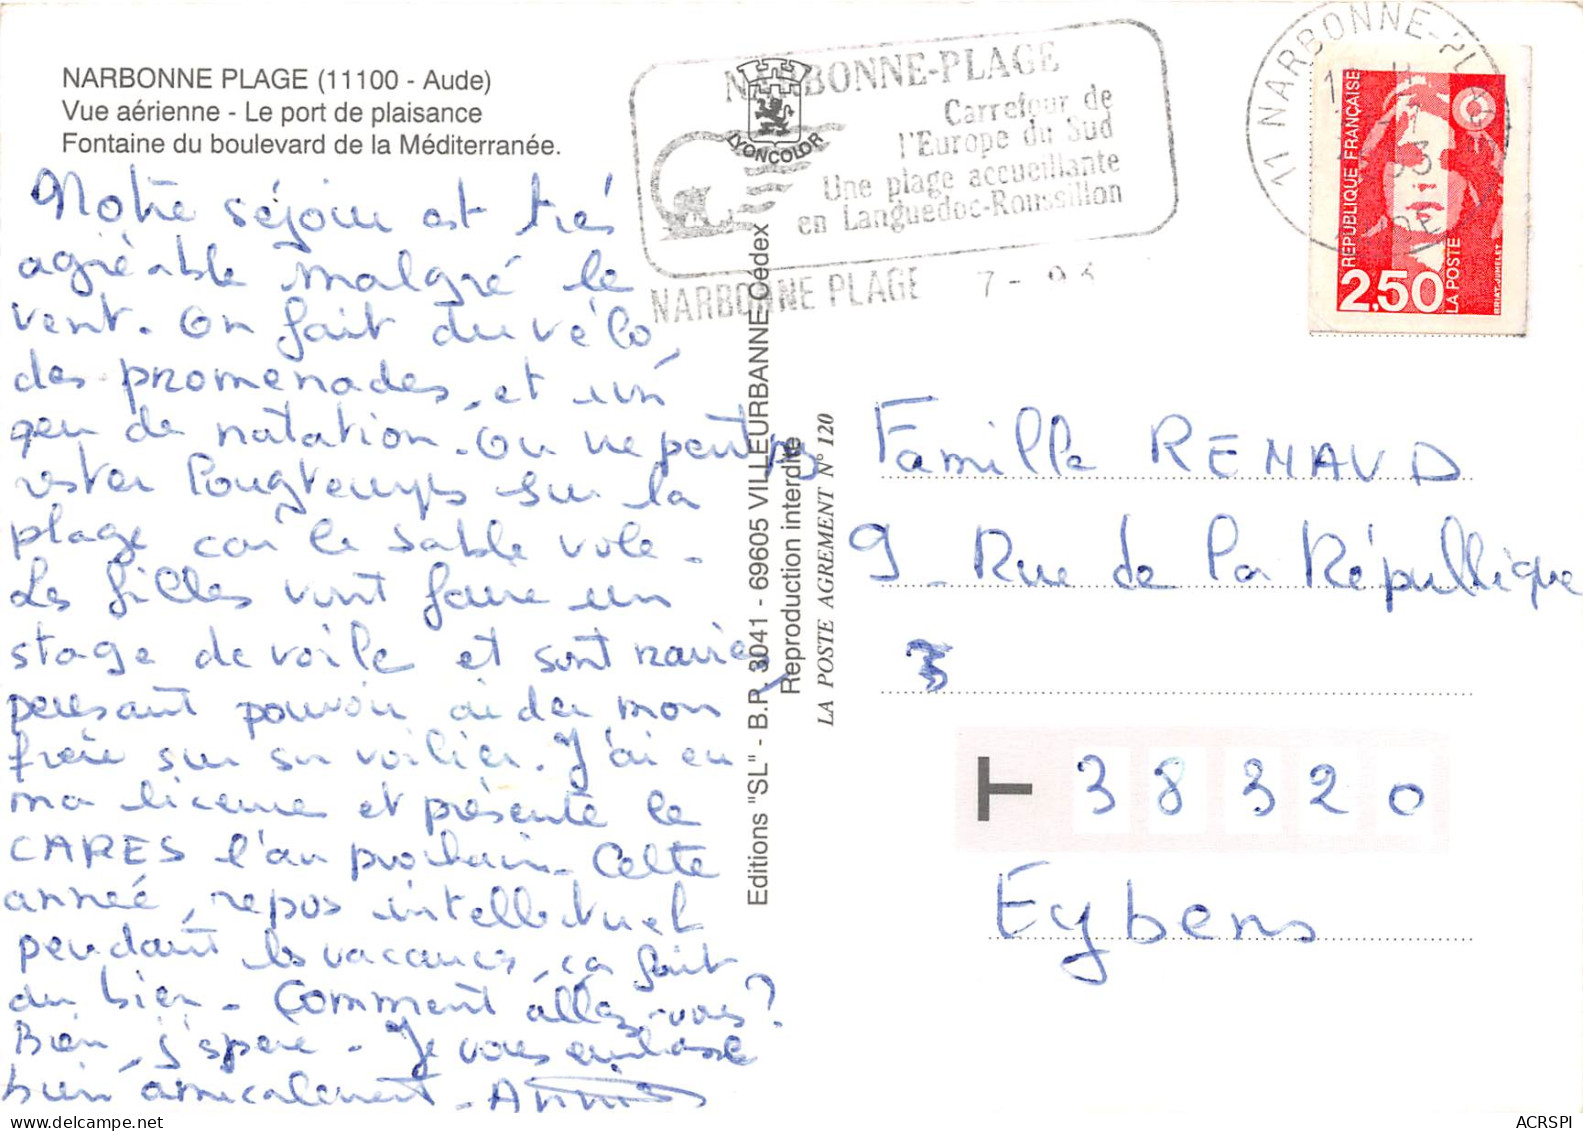 NARBONNE PLAGE (11100 - Aude)
Vue aérienne - Le port de plaisance
Fontaine du boulevard de la Méditerranée.
Notre séjour est très
agréable malgré le
vent. On fait du vélo,
des promenades, et un
peu de natation. On ne peut pas
rester longtemps sur la
plage car le sable vole.
Les filles vont faire un
stage de voile et sont ravies,
pensant pouvoir aider mon
frère sur son voilier. J'ai eu
ma licence et présente le
CAPES l'an prochain. Cette
année, repos intellectuel
pendant les vacances, ça fait
du bien. Comment allez-vous?
Bien, j'espère. Je vous embrasse
bien amicalement.
NARBONNE-PLAGE
Carrefour de
l'Europe du Sud
Une plage accueillante
en Languedoc-Roussillon
NARBONNE PLAGE 7 - 93
LYONCOLOR
Editions "SL" - B.P. 3041 - 69605 VILLEURBANNE Cédex
Reproduction interdite
LA POSTE AGREMENT N° 120
11 NARBONNE-PLAGE
RÉPUBLIQUE FRANÇAISE
2,50
LA POSTE
BRIAT-JUMELET
Famille RENAUD
9 - Rue de la République
T 38320
Eybens
ACRSPI